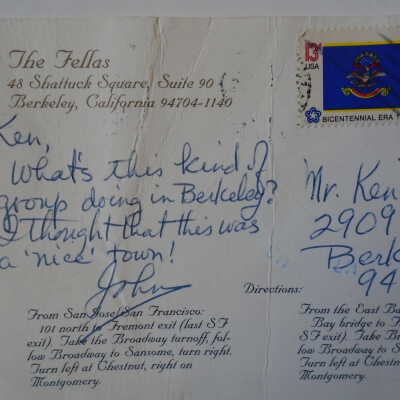 The Fellas
48 Shattuck Square, Suite 90
Berkeley, California 94704-1140
13c
USA
BICENTENNIAL ERA
Ken,
What's this kind of
group doing in Berkeley?
I thought that this was
a 'nice' town!
John
Mr. Ken
2909
Berk
94
Directions:
From San Jose/San Francisco:
101 north to Fremont exit (last SF
exit). Take the Broadway turnoff, fol-
low Broadway to Sansome, turn right.
Turn left at Chestnut, right on
Montgomery.
From the East Ba
Bay bridge to F
SF exit). Take Br
low Broadway to S
Turn left at Ches
Montgomery.